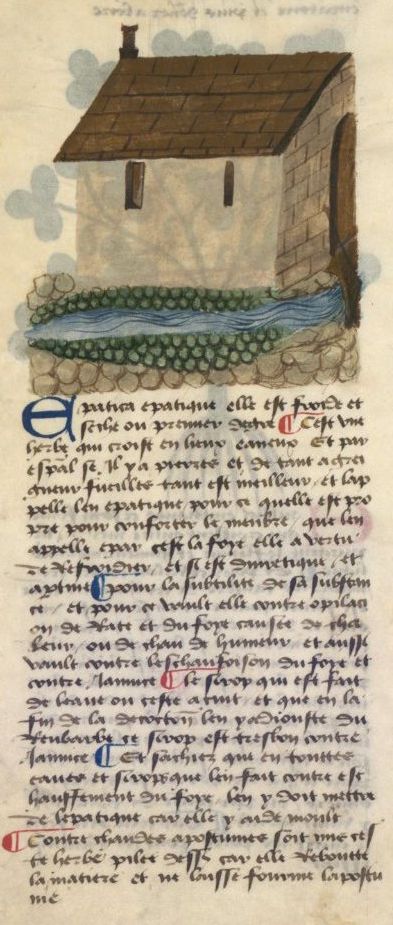 Epatica epatique elle est froide et
seche ou premier degre ¶ Cest une
herbe qui croist en lieux eaueux Et par
espal se, Il y a pierres et de tant a gre
gneur fueilles tant est meilleur, et lap
pelle len epatique pour ce quelle est pro
pre pour conforter le menbre, que len
appelle epar cest la foye elle a vertu
de Refroidier, et si est diuretique, et
aptine ¶ pour la subtilite de sa substan
ce, et pour ce vault elle contre opilaci
on de Rate et du foye causee de cha
leur, ou de chau de humeur et aussi
vault contre leschaufoison du foye et
contre Jaunice ¶ le sirop qui est fait
de leaue ou ceste a cuit, et que en la
fin de la decoction len y adiouste du
Reubarbe ce sirop est tresbon contre
Jaunice ¶ Et sachiez que en touttes
eaues et sirops que len fait contre esc
hauffement du foye, len y doit mettre
de lepatique car elle y aide moult
¶ Contre chaudes apostumes soit mis ces
te herbe pilee dessus car elle Reboutte
la matiere et ne laisse fourme lapostu
me